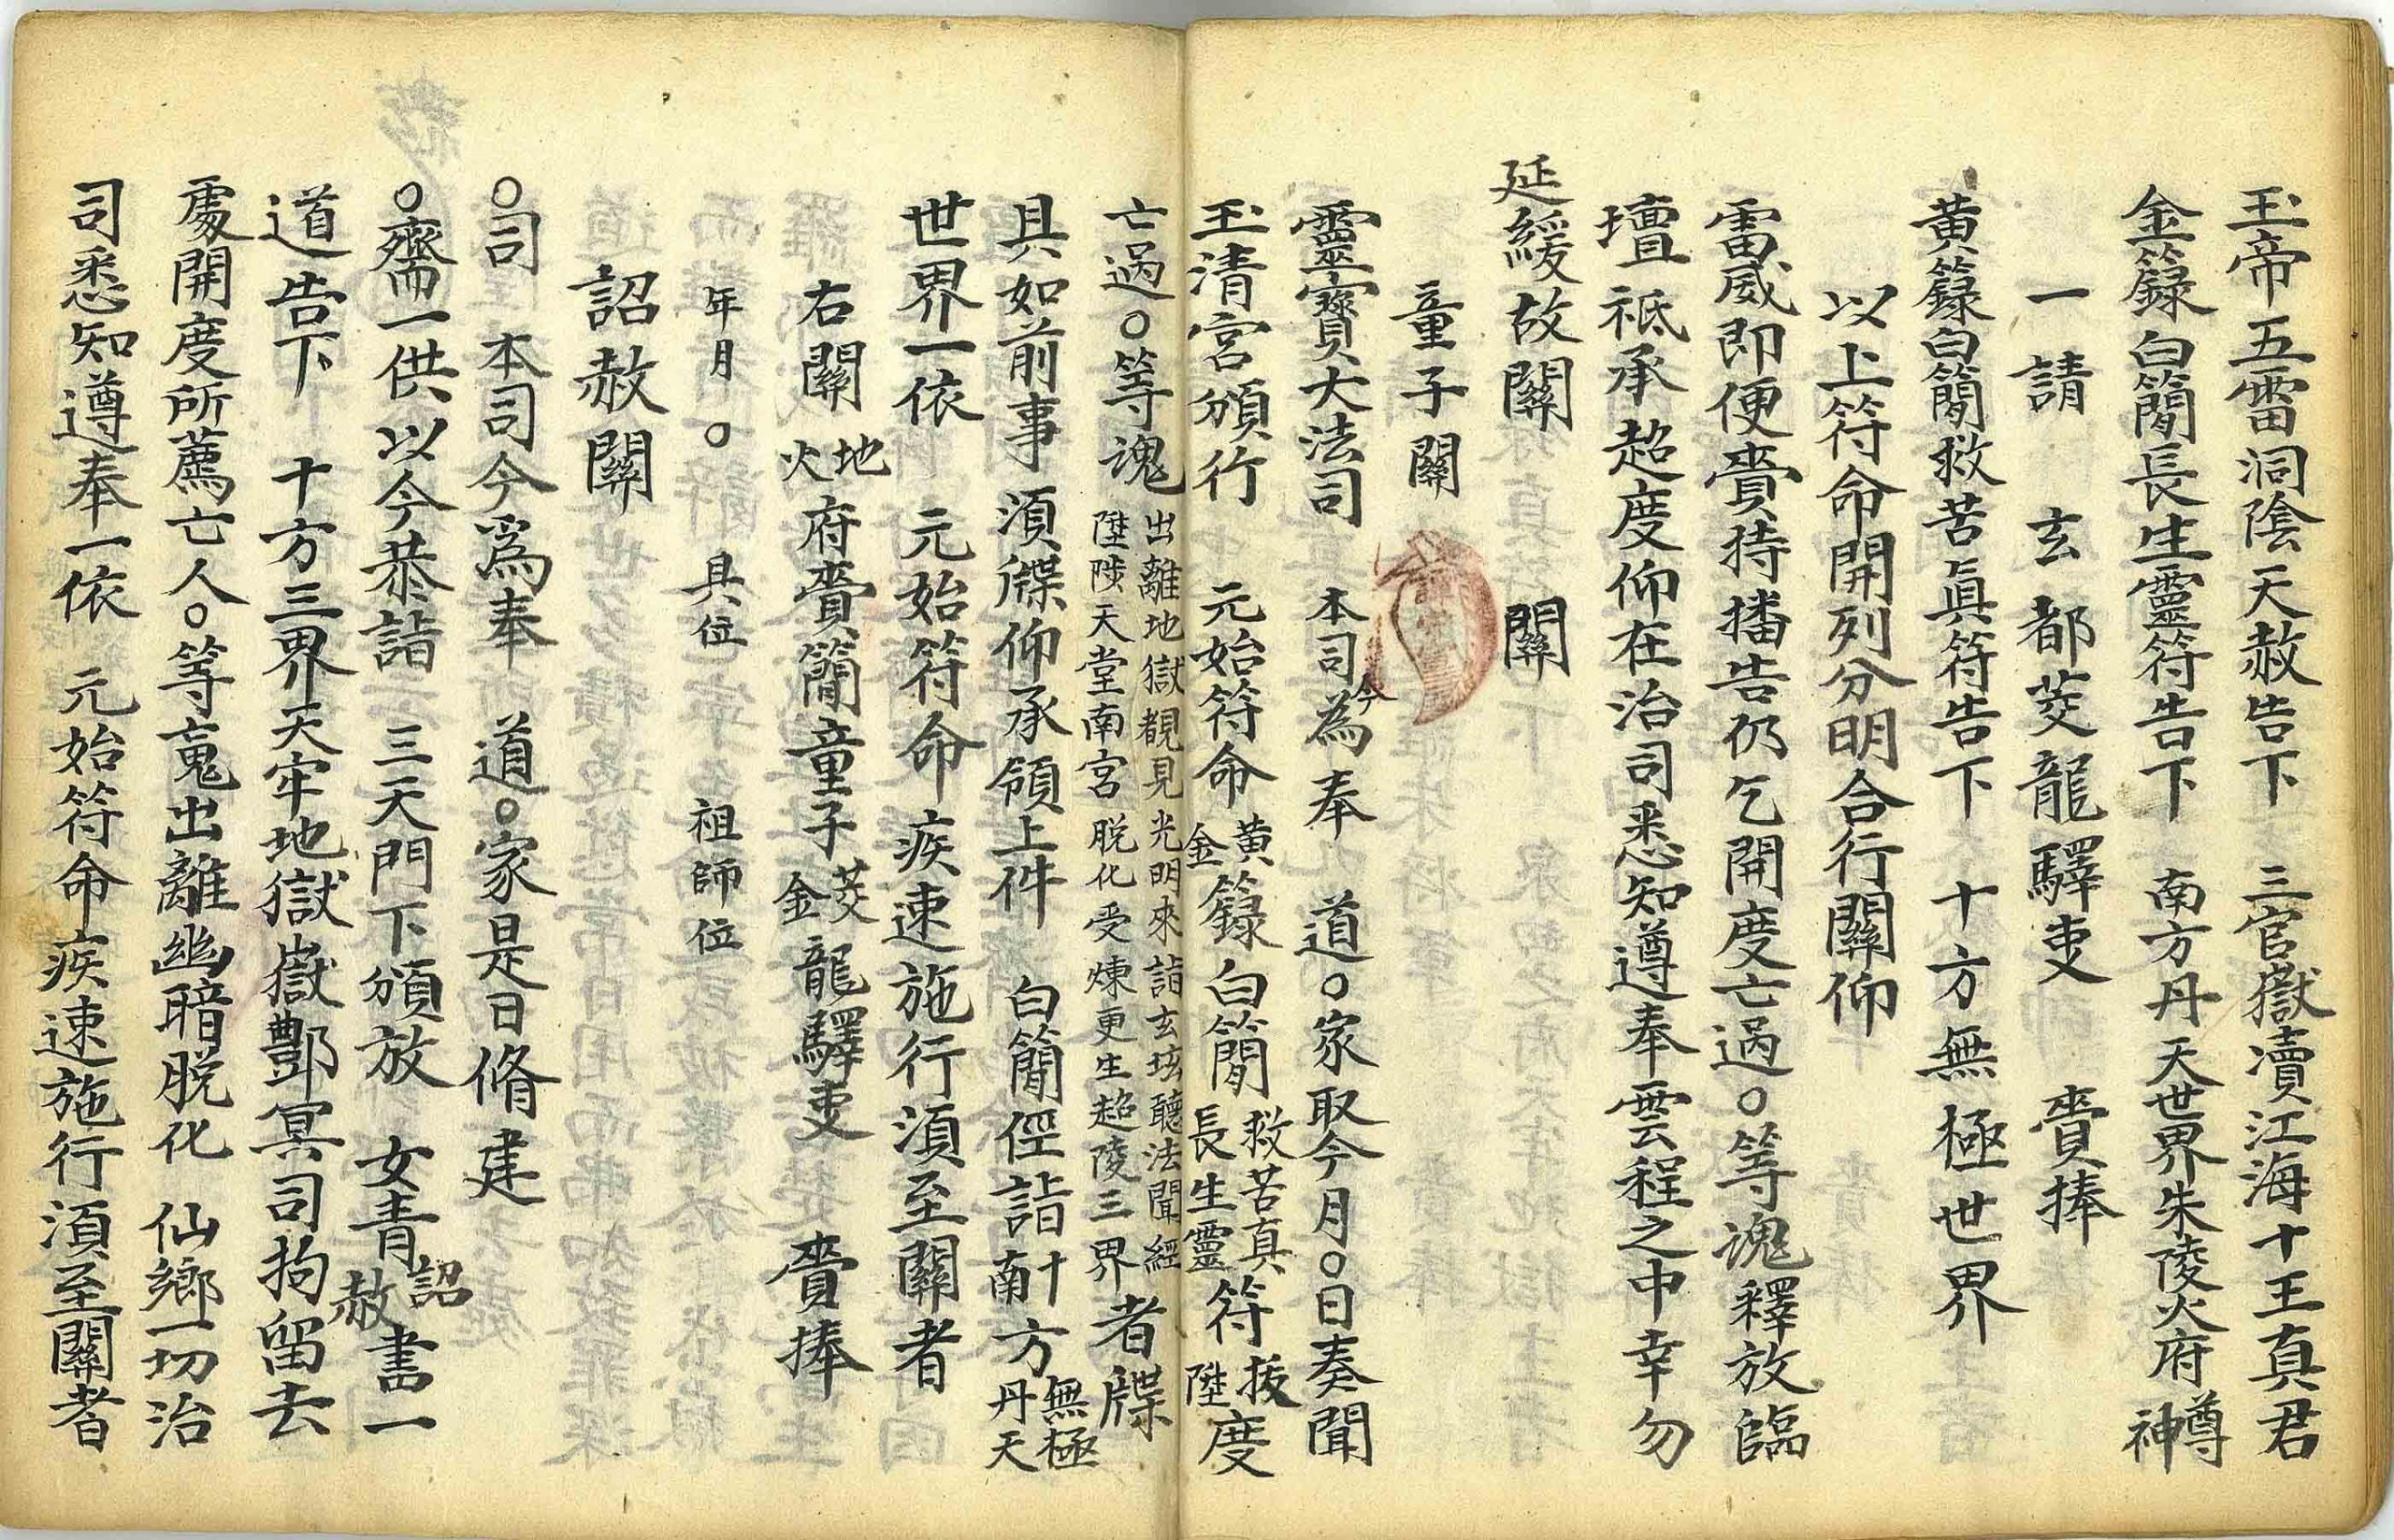 玉帝五雷洞陰天赦告下　三官嶽瀆江海十王真君
金籙白簡長生靈符告下　南方丹天世界朱陵火府尊神
一請　玄都茭龍驛吏　賫捧
黃籙白簡救苦眞符告下　十方無極世界
以上符命開列分明合行關仰
雷威即便賫持播告仍乞開度亡過○等魂釋放臨
壇祗承超度仰在治司悉知遵奉雲程之中幸勿
延緩故關　關
童子關
靈寶大法司　本司今為奉　道○家取今月○日奏聞
玉清宮頒行　元始符命黃金籙白簡救苦真長生靈符拔陞度
亡過○等魂出離地獄覩見光明來詣玄壇聽法聞經陞陟天堂南宮脫化受煉更生超陵三界者牒
具如前事　須牒仰承領上件　白簡徑詣十南方無極丹天
世界一依　元始符命疾速施行須至關者
右關地火府賫簡童子茭金龍驛吏　賫捧
年月○　具位　祖師位
詔赦關
○司　本司今爲奉　道○家是日脩建
○齋一供以今恭詣　三天門下頒放　女青詔赦書一
道告下　十方三界天牢地獄嶽酆冥司拘留去
處開度所薦亡人○等䰟出離幽暗脫化　仙鄉一切治
司悉知遵奉一依　元始符命疾速施行須至關者